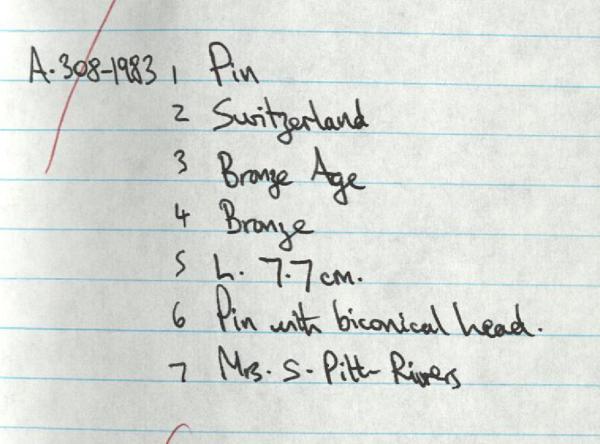 A.308-1983 1 Pin
2 Switzerland
3 Bronze Age
4 Bronze
5 L. 7.7 cm.
6 Pin with biconical head.
7 Mrs. S. Pitt-Rivers